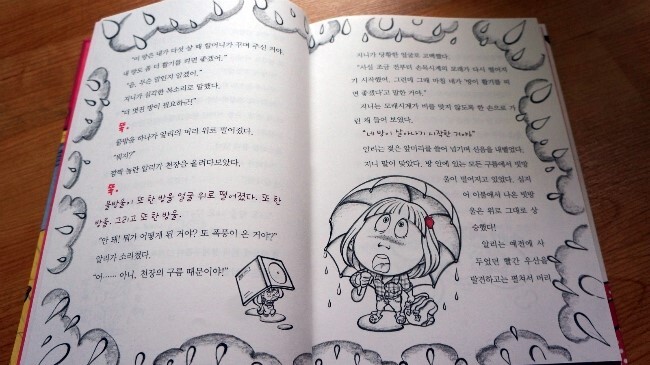 "이 방은 내가 다섯 살 때 할머니가 꾸며 주신 거야.
내 방도 좀 더 활기를 띠면 좋겠어."
"음, 무슨 말인지 알겠어."
지니가 심각한 목소리로 말했다.
"더 멋진 방이 필요하구나!"
뚝.
물방울 하나가 알리의 머리 위로 떨어졌다.
"뭐지?"
깜짝 놀란 알리가 천장을 올려다보았다.
뚝.
물방울이 또 한 방울 얼굴 위로 떨어졌다. 또 한
방울. 그리고 또 한 방울.
"안 돼! 뭐가 어떻게 된 거야? 또 폭풍이 온 거야?"
알리가 소리쳤다.
"아…… 아니, 천장의 구름 때문이야!"
지니가 당황한 얼굴로 고백했다.
"사실 조금 전부터 손목시계의 모래가 다시 떨어지
기 시작했어. 그런데 그때 마침 네가 '방이 활기를 띠
면 좋겠다'고 말한 거야."
지니는 모래시계가 비를 맞지 않도록 한 손으로 가
린 채 들어 보였다.
"네 방이 살아나기 시작한 거야!"
알리는 젖은 앞머리를 쓸어 넘기며 신음을 내뱉었다.
지니 말이 맞았다. 방 안에 있는 모든 구름에서 빗방
울이 떨어지고 있었다. 심지
어 이불에서 나온 빗방
울은 위로 그대로 상
승했다!
알리는 예전에 사
두었던 빨간 우산을
발견하고는 펼쳐서 머리